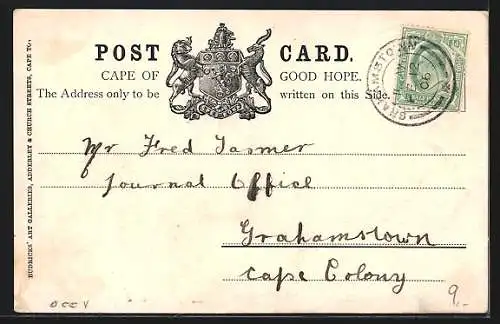 POST CARD.
CAPE OF GOOD HOPE.
The Address only to be written on this Side.
GRAHAMSTOWN
Mr Fred Tasmer
Journal Office
Grahamstown
Cape Colony
HUDRICKS' ART GALLERIES, ADDERLEY & CHURCH STREETS, CAPE TO
9,-